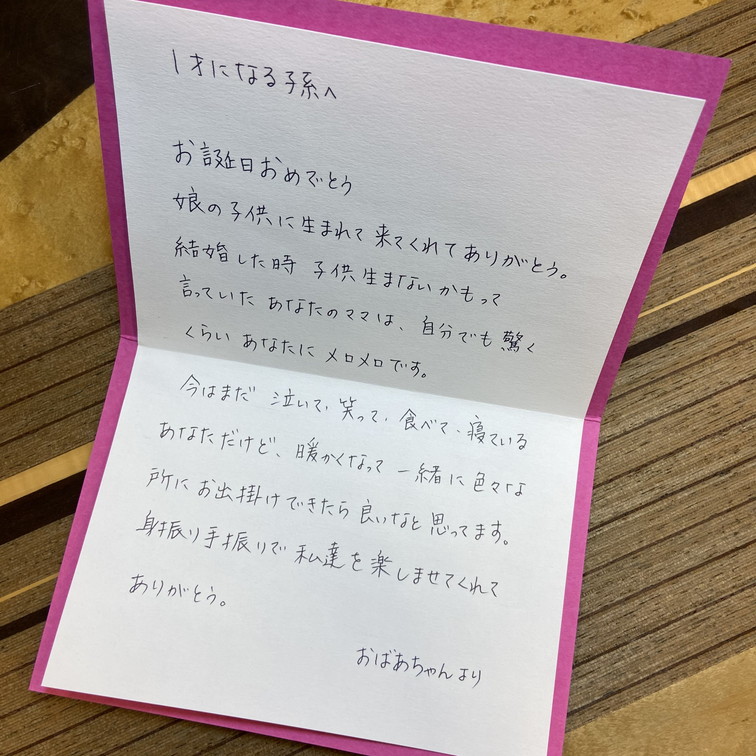 1才になる子孫へ
お誕生日おめでとう
娘の子供に生まれて来てくれてありがとう。
結婚した時 子供生まないかもって
言っていた あなたのママは、自分でも驚く
くらい あなたに メロメロです。
今はまだ 泣いて、笑って、食べて、寝ている
あなただけど、暖かくなって 一緒に色々な
所に お出掛けできたら良いなと思ってます。
身振り手振りで 私達を楽しませてくれて
ありがとう。
おばあちゃんより